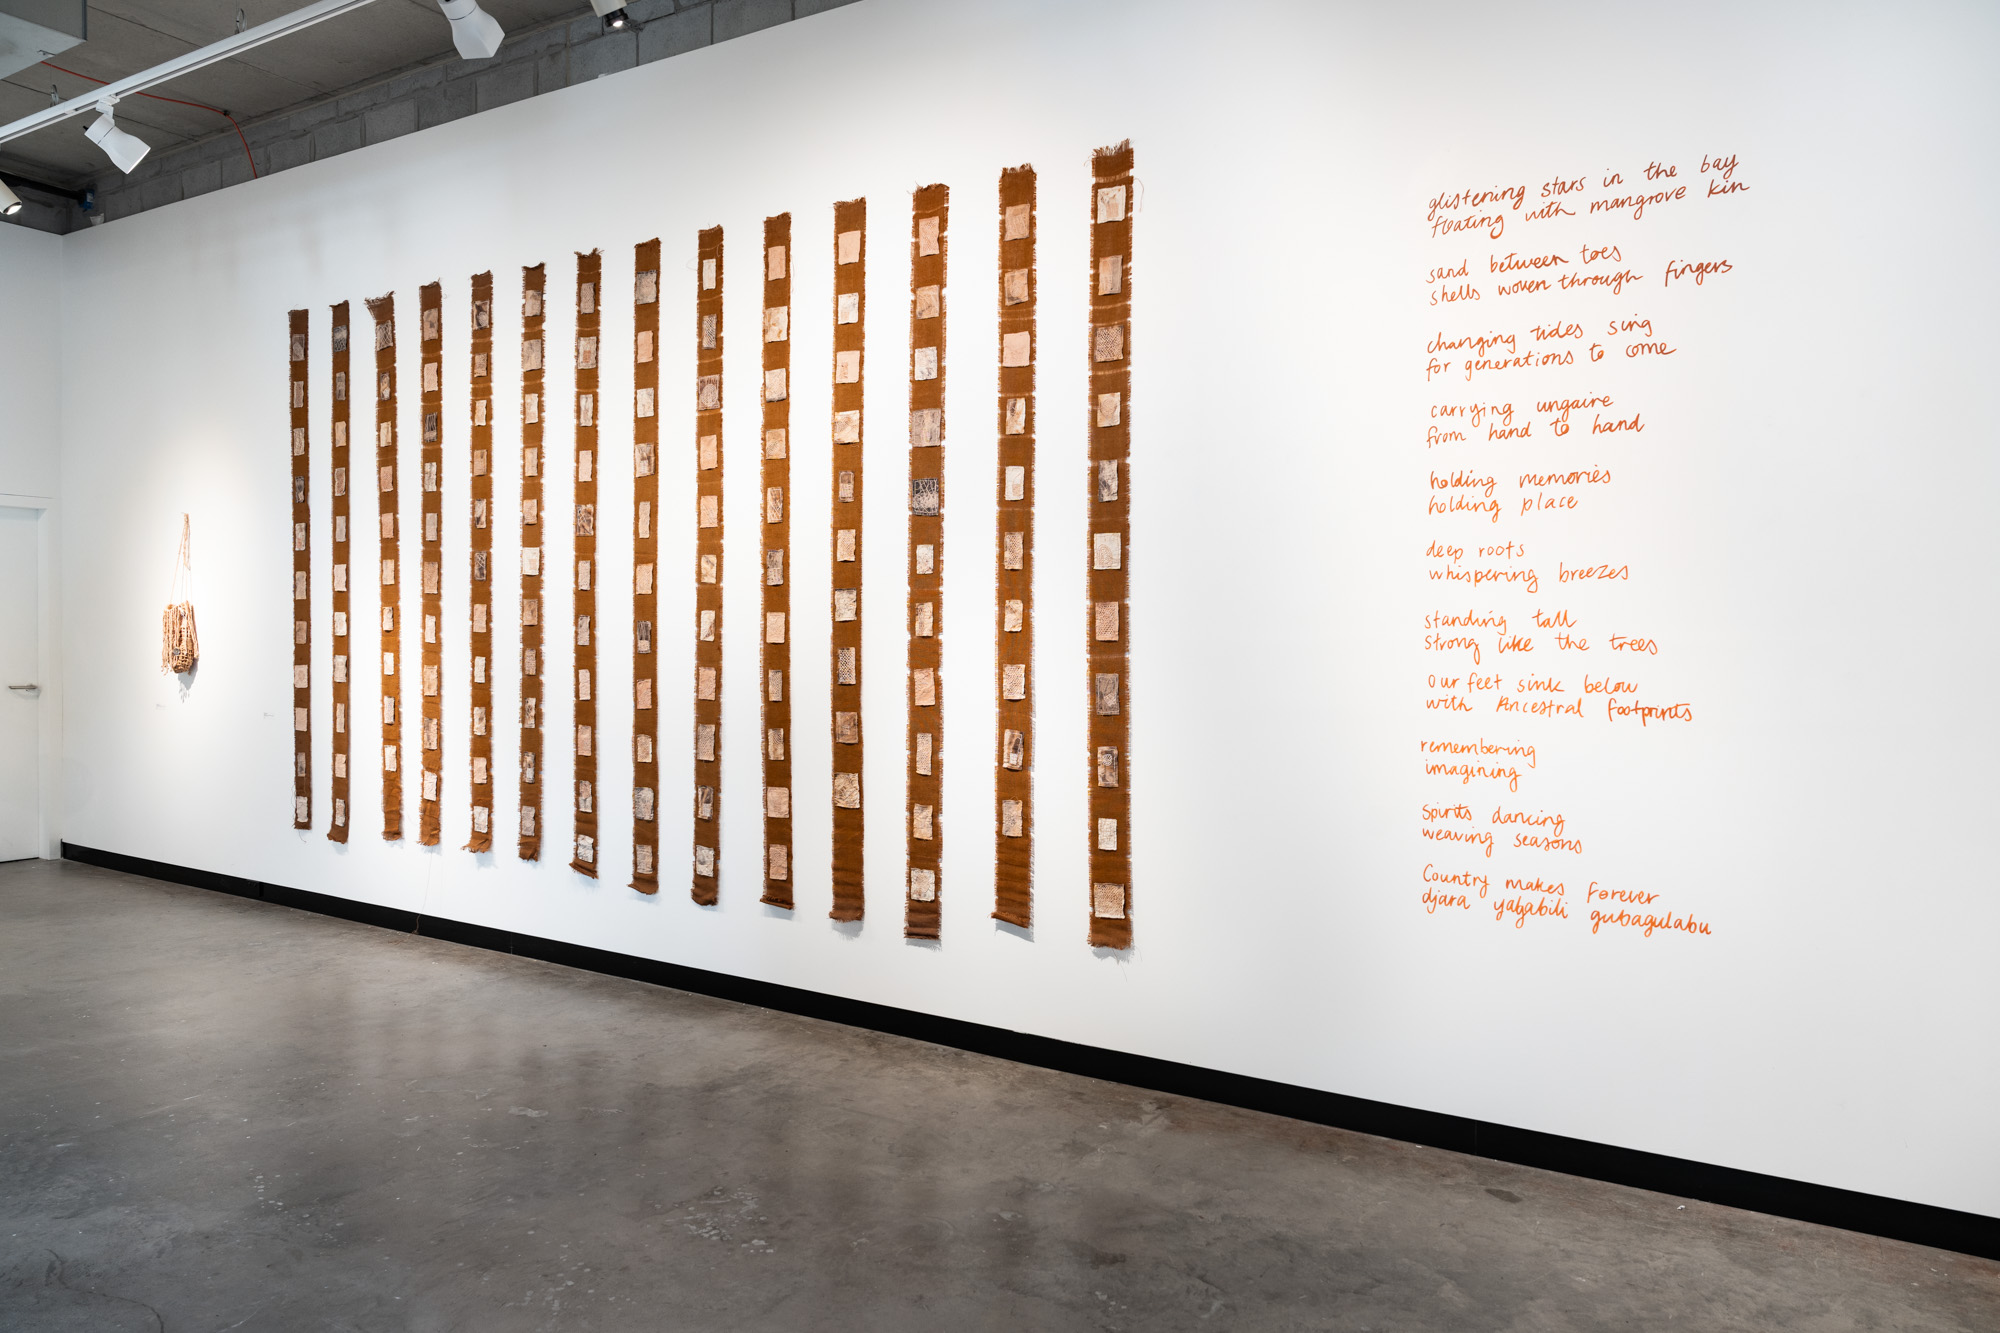 glistening stars in the bay
floating with mangrove kin
sand between toes
shells woven through fingers
changing tides sing
for generations to come
carrying ungaire
from hand to hand
holding memories
holding place
deep roots
whispering breezes
standing tall
strong like the trees
our feet sink below
with Ancestral footprints
remembering
imagining
Spirits dancing
weaving seasons
Country makes Forever
djara yagabili gubagulabu